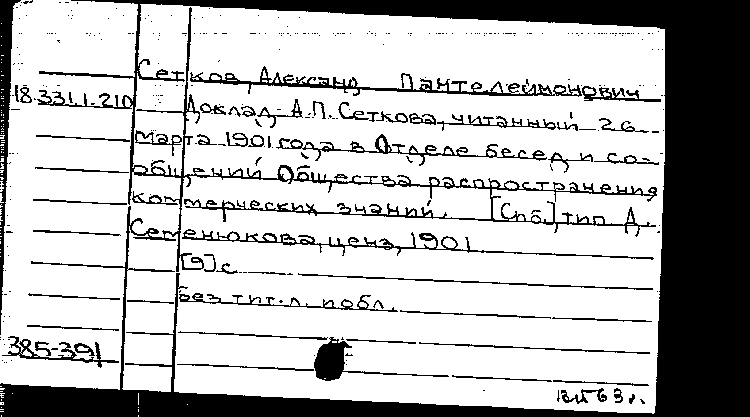 Сетков, Александ Пантелеймонович
18.331.1.210 Доклад А.П. Сеткова, читанный 26
марта 1901 года в Отделе бесед и со-
общений Общества распространения
коммерческих знаний. [Спб.], тип Д.
Семенюкова, ценз, 1901
[9] с
Без тит. л. и обл.
385-391
63 г.